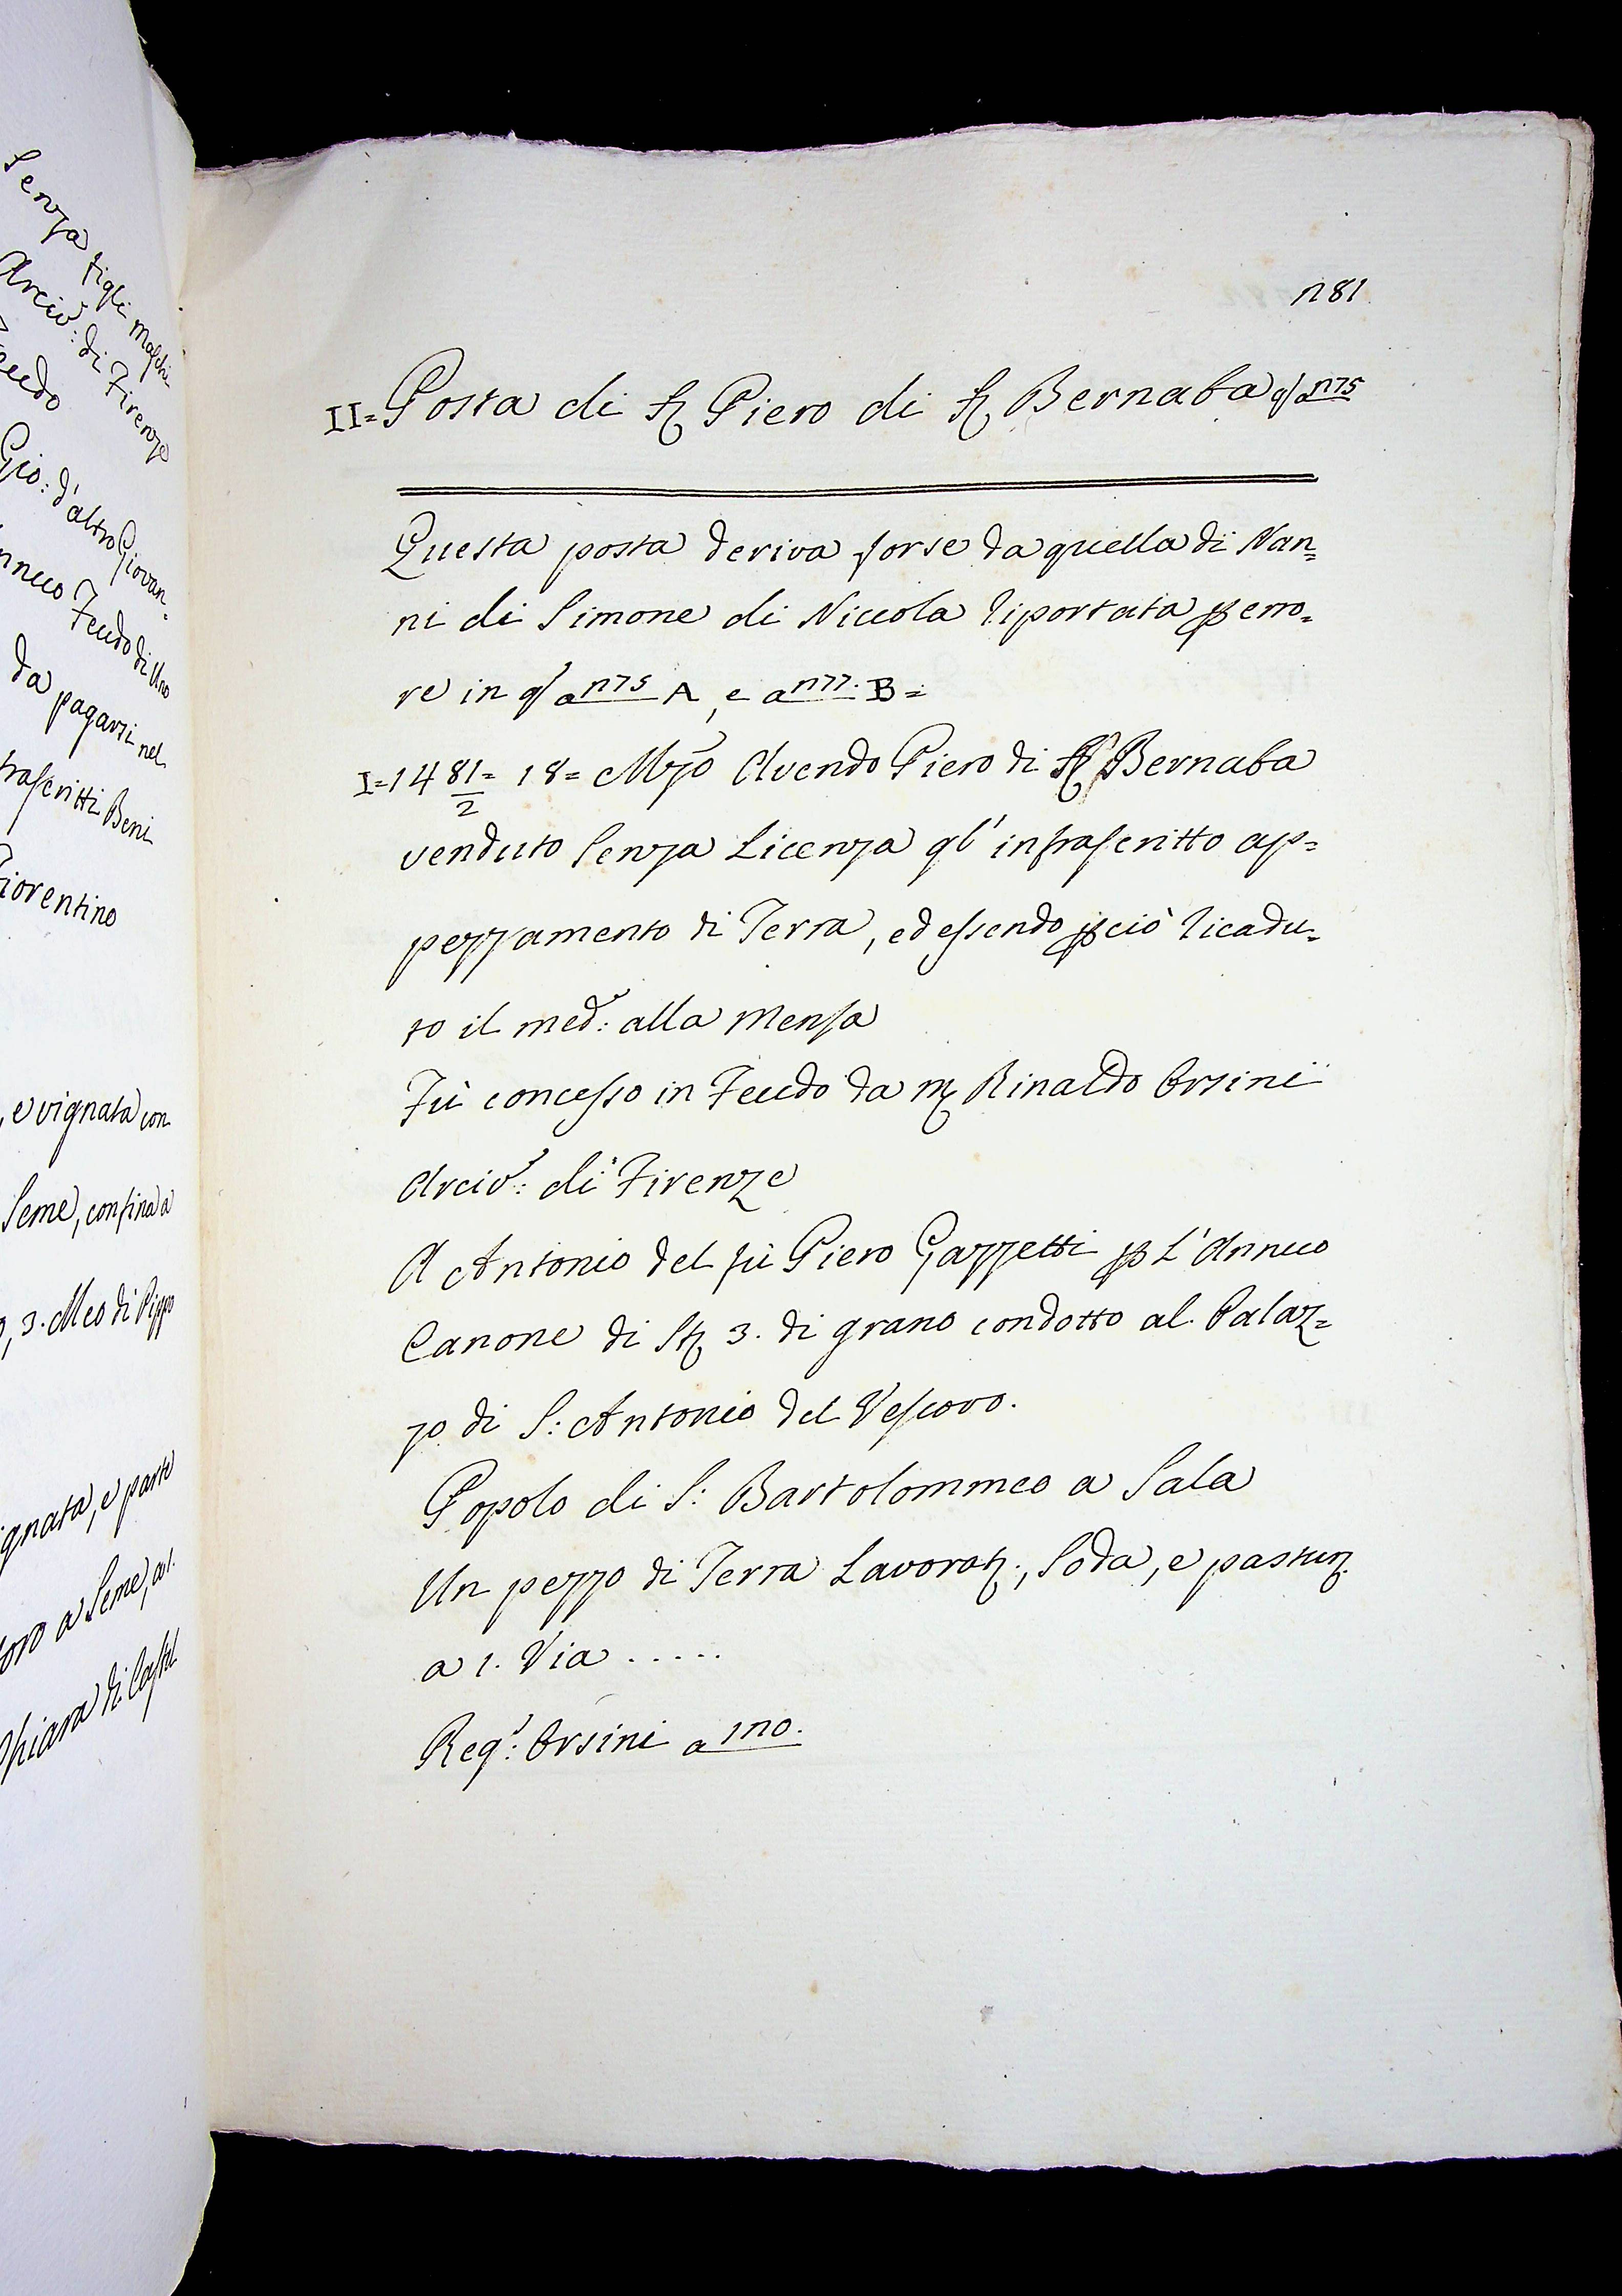 Senza figli maschi
Arciv: di Firenze
Feudo
Gio: d'altro Giovan-
nnuo Feudo di Uno
da pagarsi nel
frascritti Beni
Fiorentino
, e vignata con
Seme, confina a
, 3. Meo di Pippo
ignata, e parte
loro a Seme, a 1.
Chiara di Castel
n81
II= Posta di S. Piero di S. Bernaba q/ a n75
Questa posta deriva forse da quella di Nan=
ni di Simone di Niccola riportata p erro=
re in q/ a n75 A, e a n77. B=
I=1481/2= 18= Mzo Avendo Piero di S. Bernaba
venduto Senza Licenza ql' infrascritto ap=
pezzamento di Terra, ed essendo pciò ricadu=
to il med: alla Mensa
Fù concesso in Feudo da M. Rinaldo Orsini
Arciv: di Firenze
A Antonio del fù Piero Gazzetti p L'Annuo
Canone di St. 3. di grano condotto al Palaz=
zo di S: Antonio del Vescovo.
Popolo di S: Bartolommeo a Sala
Un pezzo di Terra Lavorat., Soda, e pastur.
a 1. Via .....
Reg: Orsini a 110.